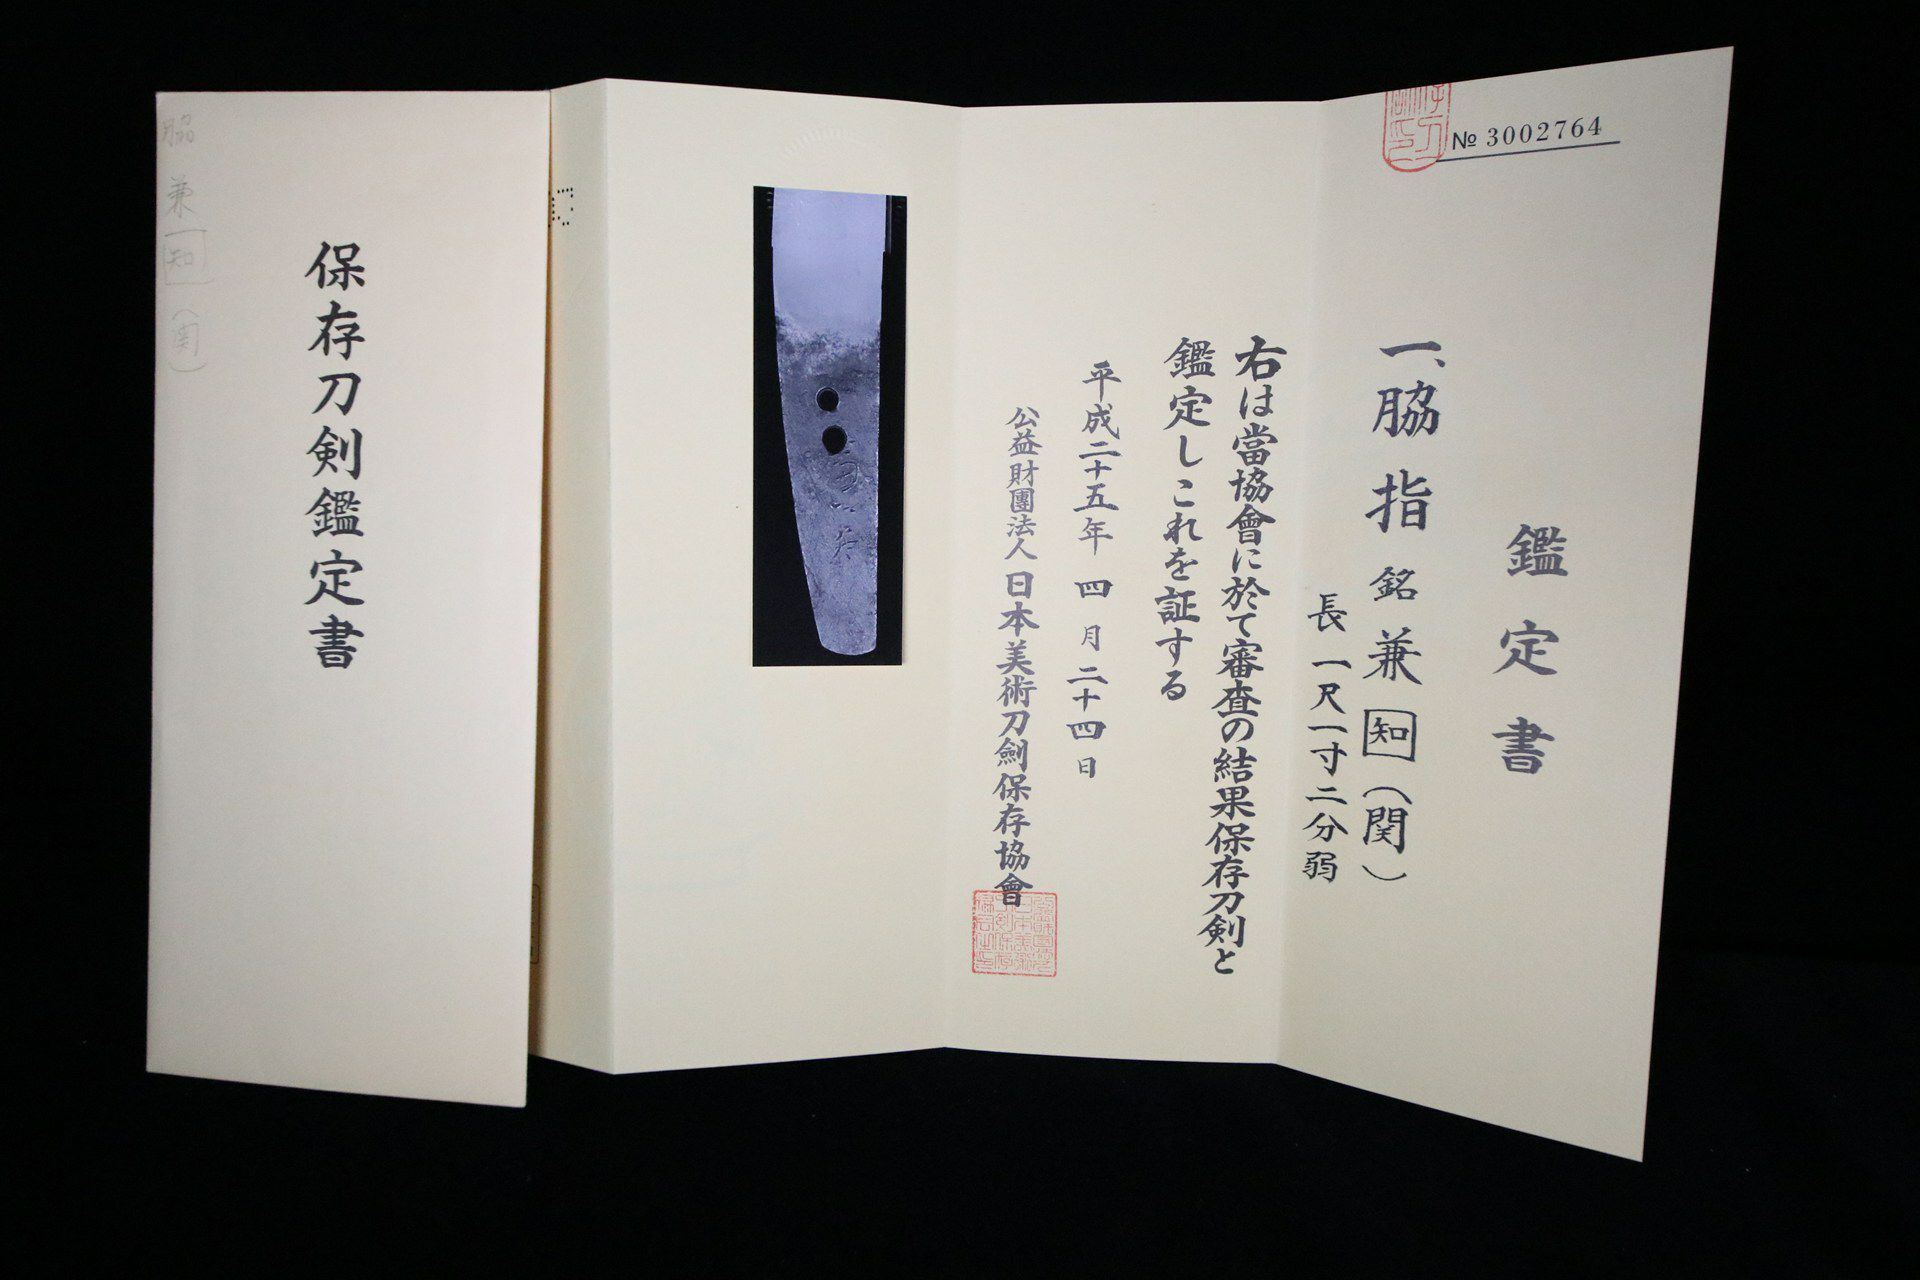 保存刀剣鑑定書
脇 兼 知 (関)
№ 3002764
鑑定書
一、脇指 銘 兼 知 (関)
長 一尺一寸二分弱
右は當協會に於て審査の結果保存刀剣と
鑑定しこれを証する
平成二十五年 四 月 二十四 日
公益財團法人 日本美術刀劍保存協會